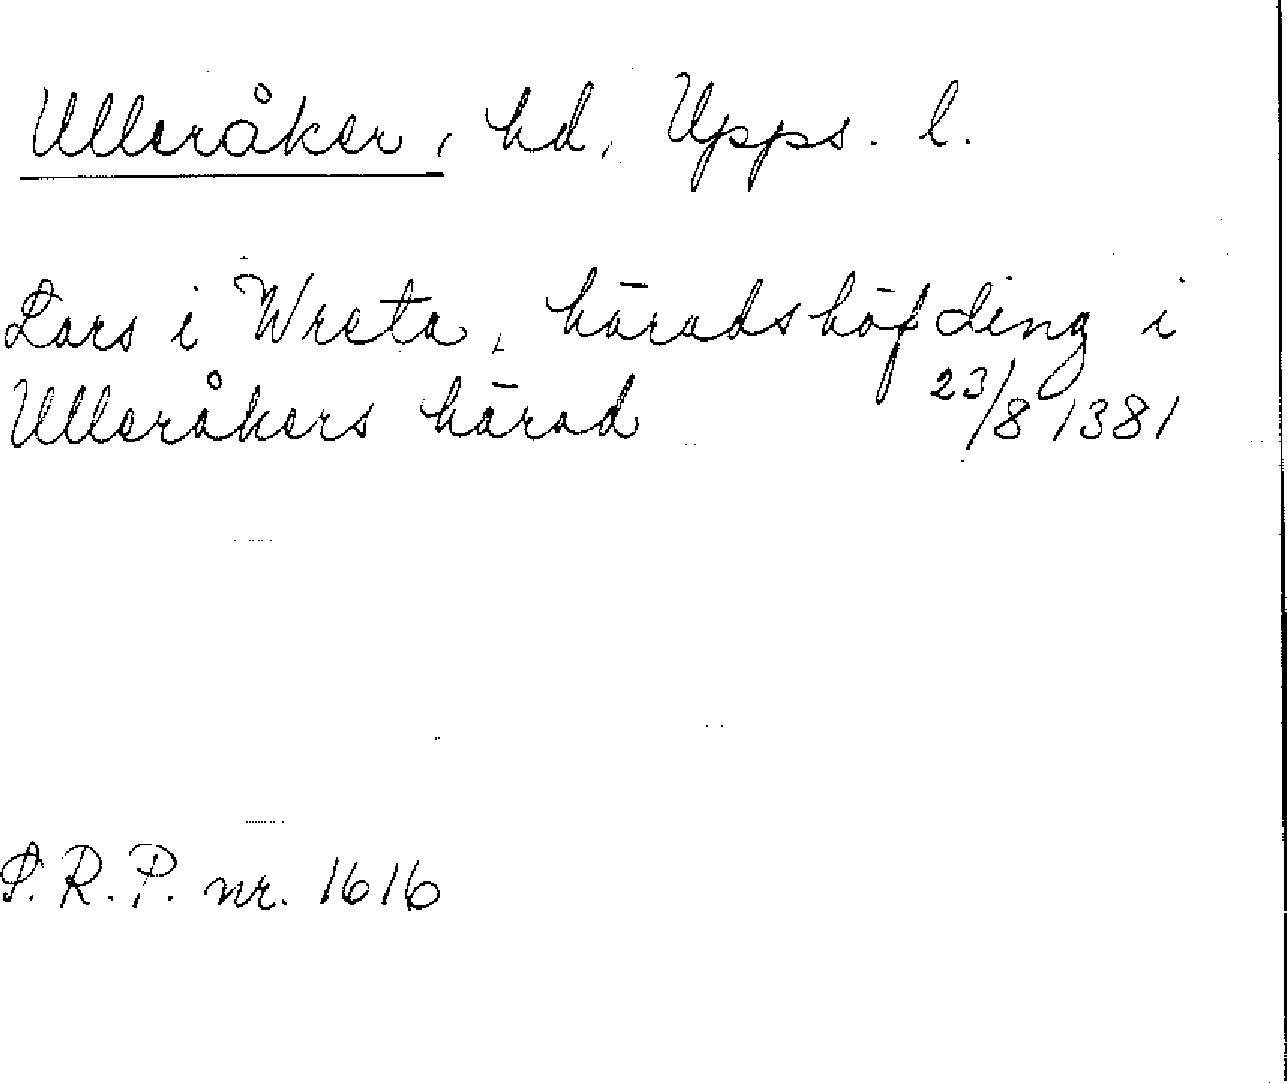 Ulleråker, hd, Upps. l.
Lars i Wreta, häradshöfding i
Ulleråkers härad 23/8 1381
S.R.P. nr. 1616